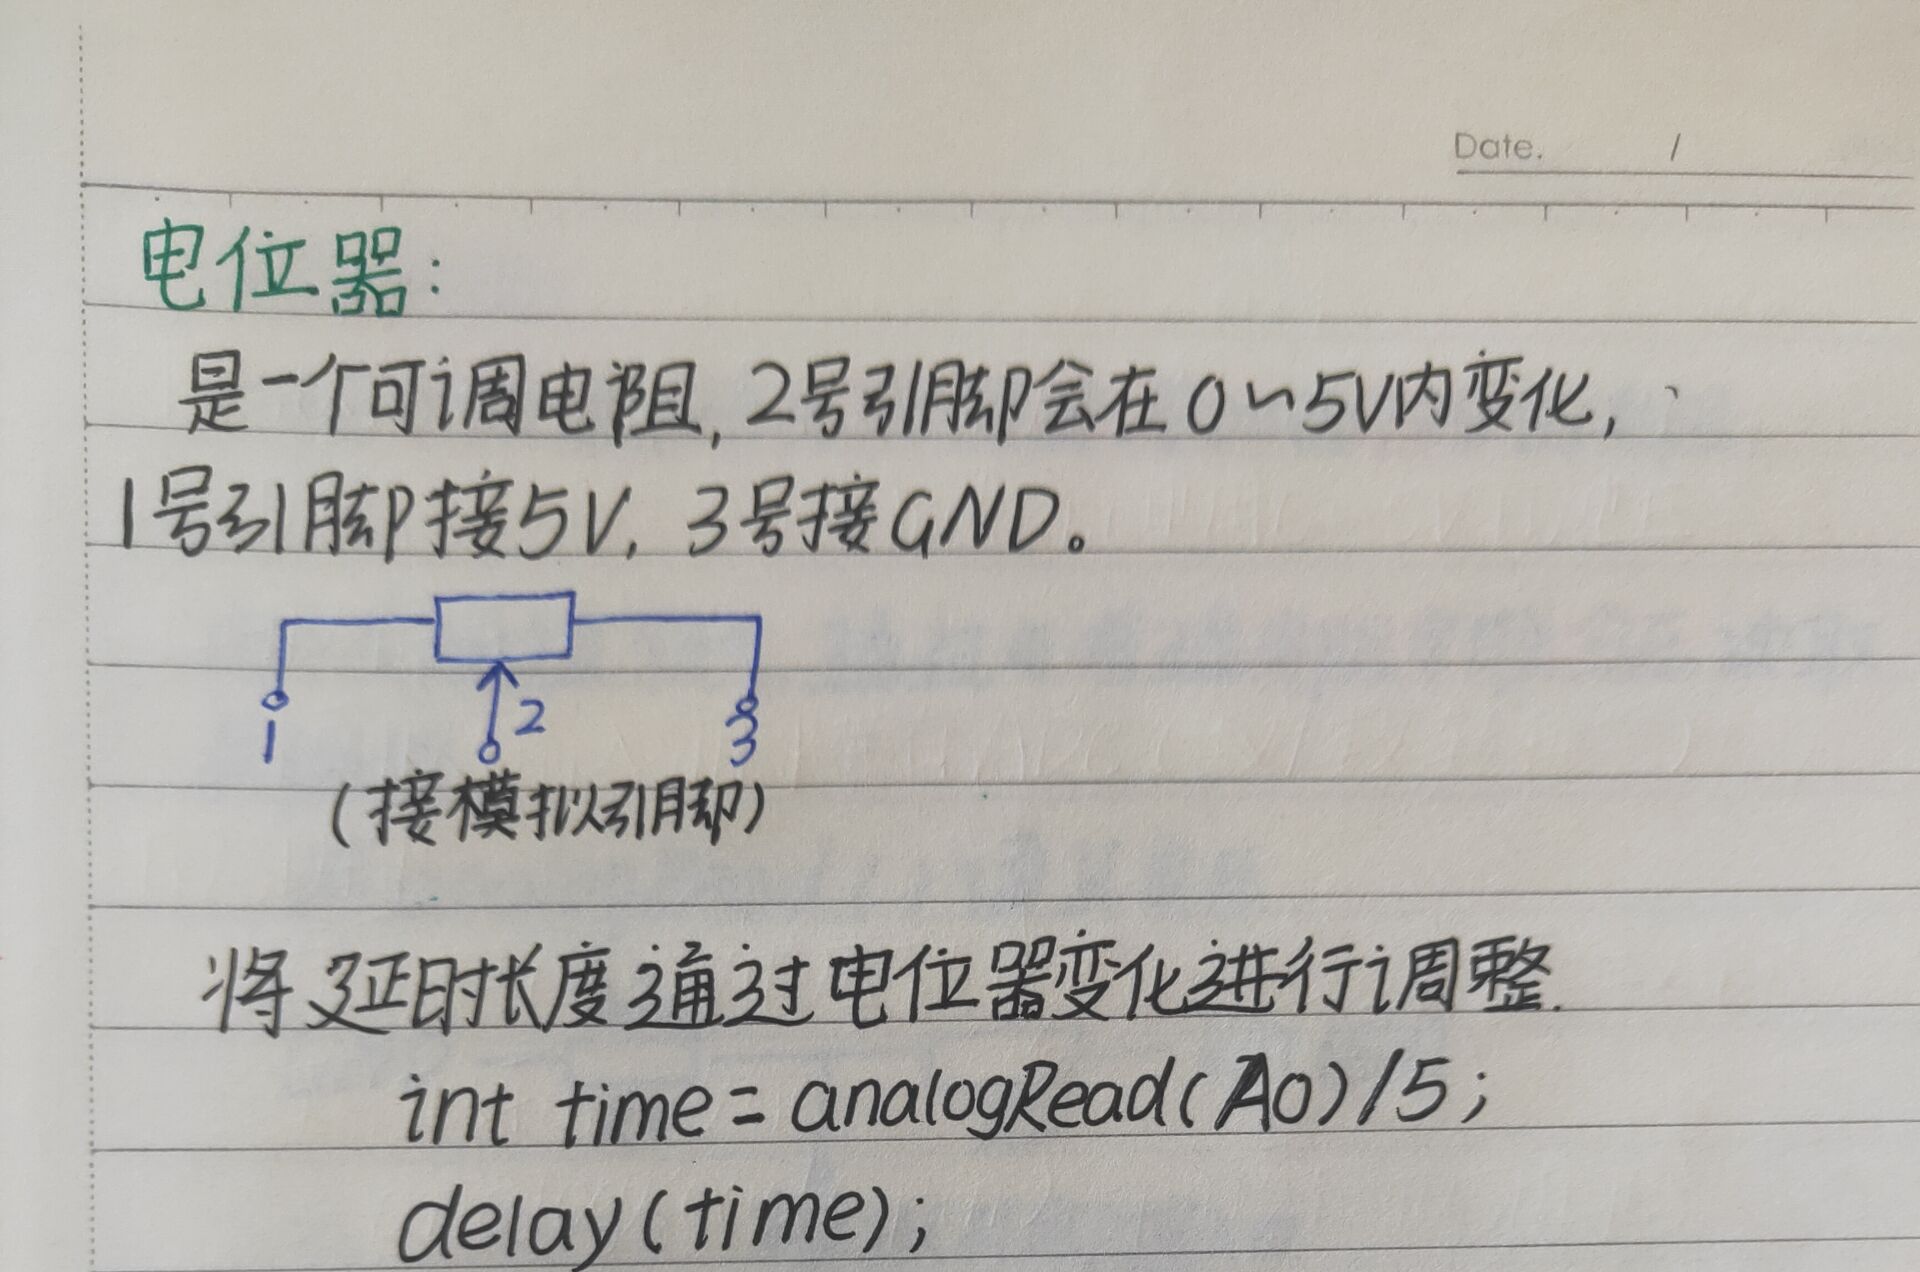 Date. /
电位器:
是一个可调电阻,2号引脚会在0~5V内变化,
1号引脚接5V,3号接GND。
1 2 3
(接模拟引脚)
将延时长度通过电位器变化进行调整.
int time = analogRead(A0)/5;
delay(time);